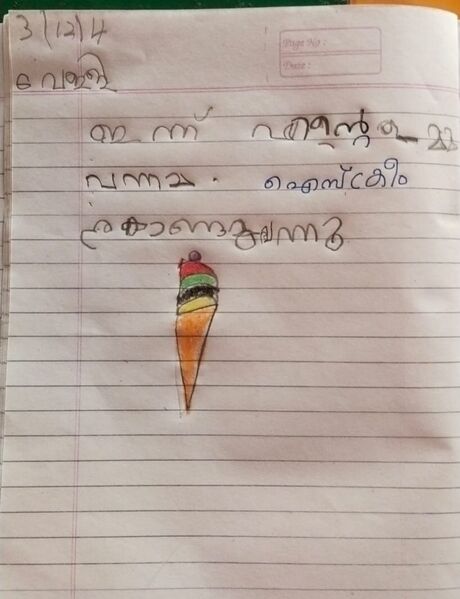 3/12/4
Page No :
Date :
വെള്ളി
ഇന്ന് എന്റെ ഉമ്മ
വന്നു. ഐസ്ക്രീം
കൊണ്ടുവന്നു